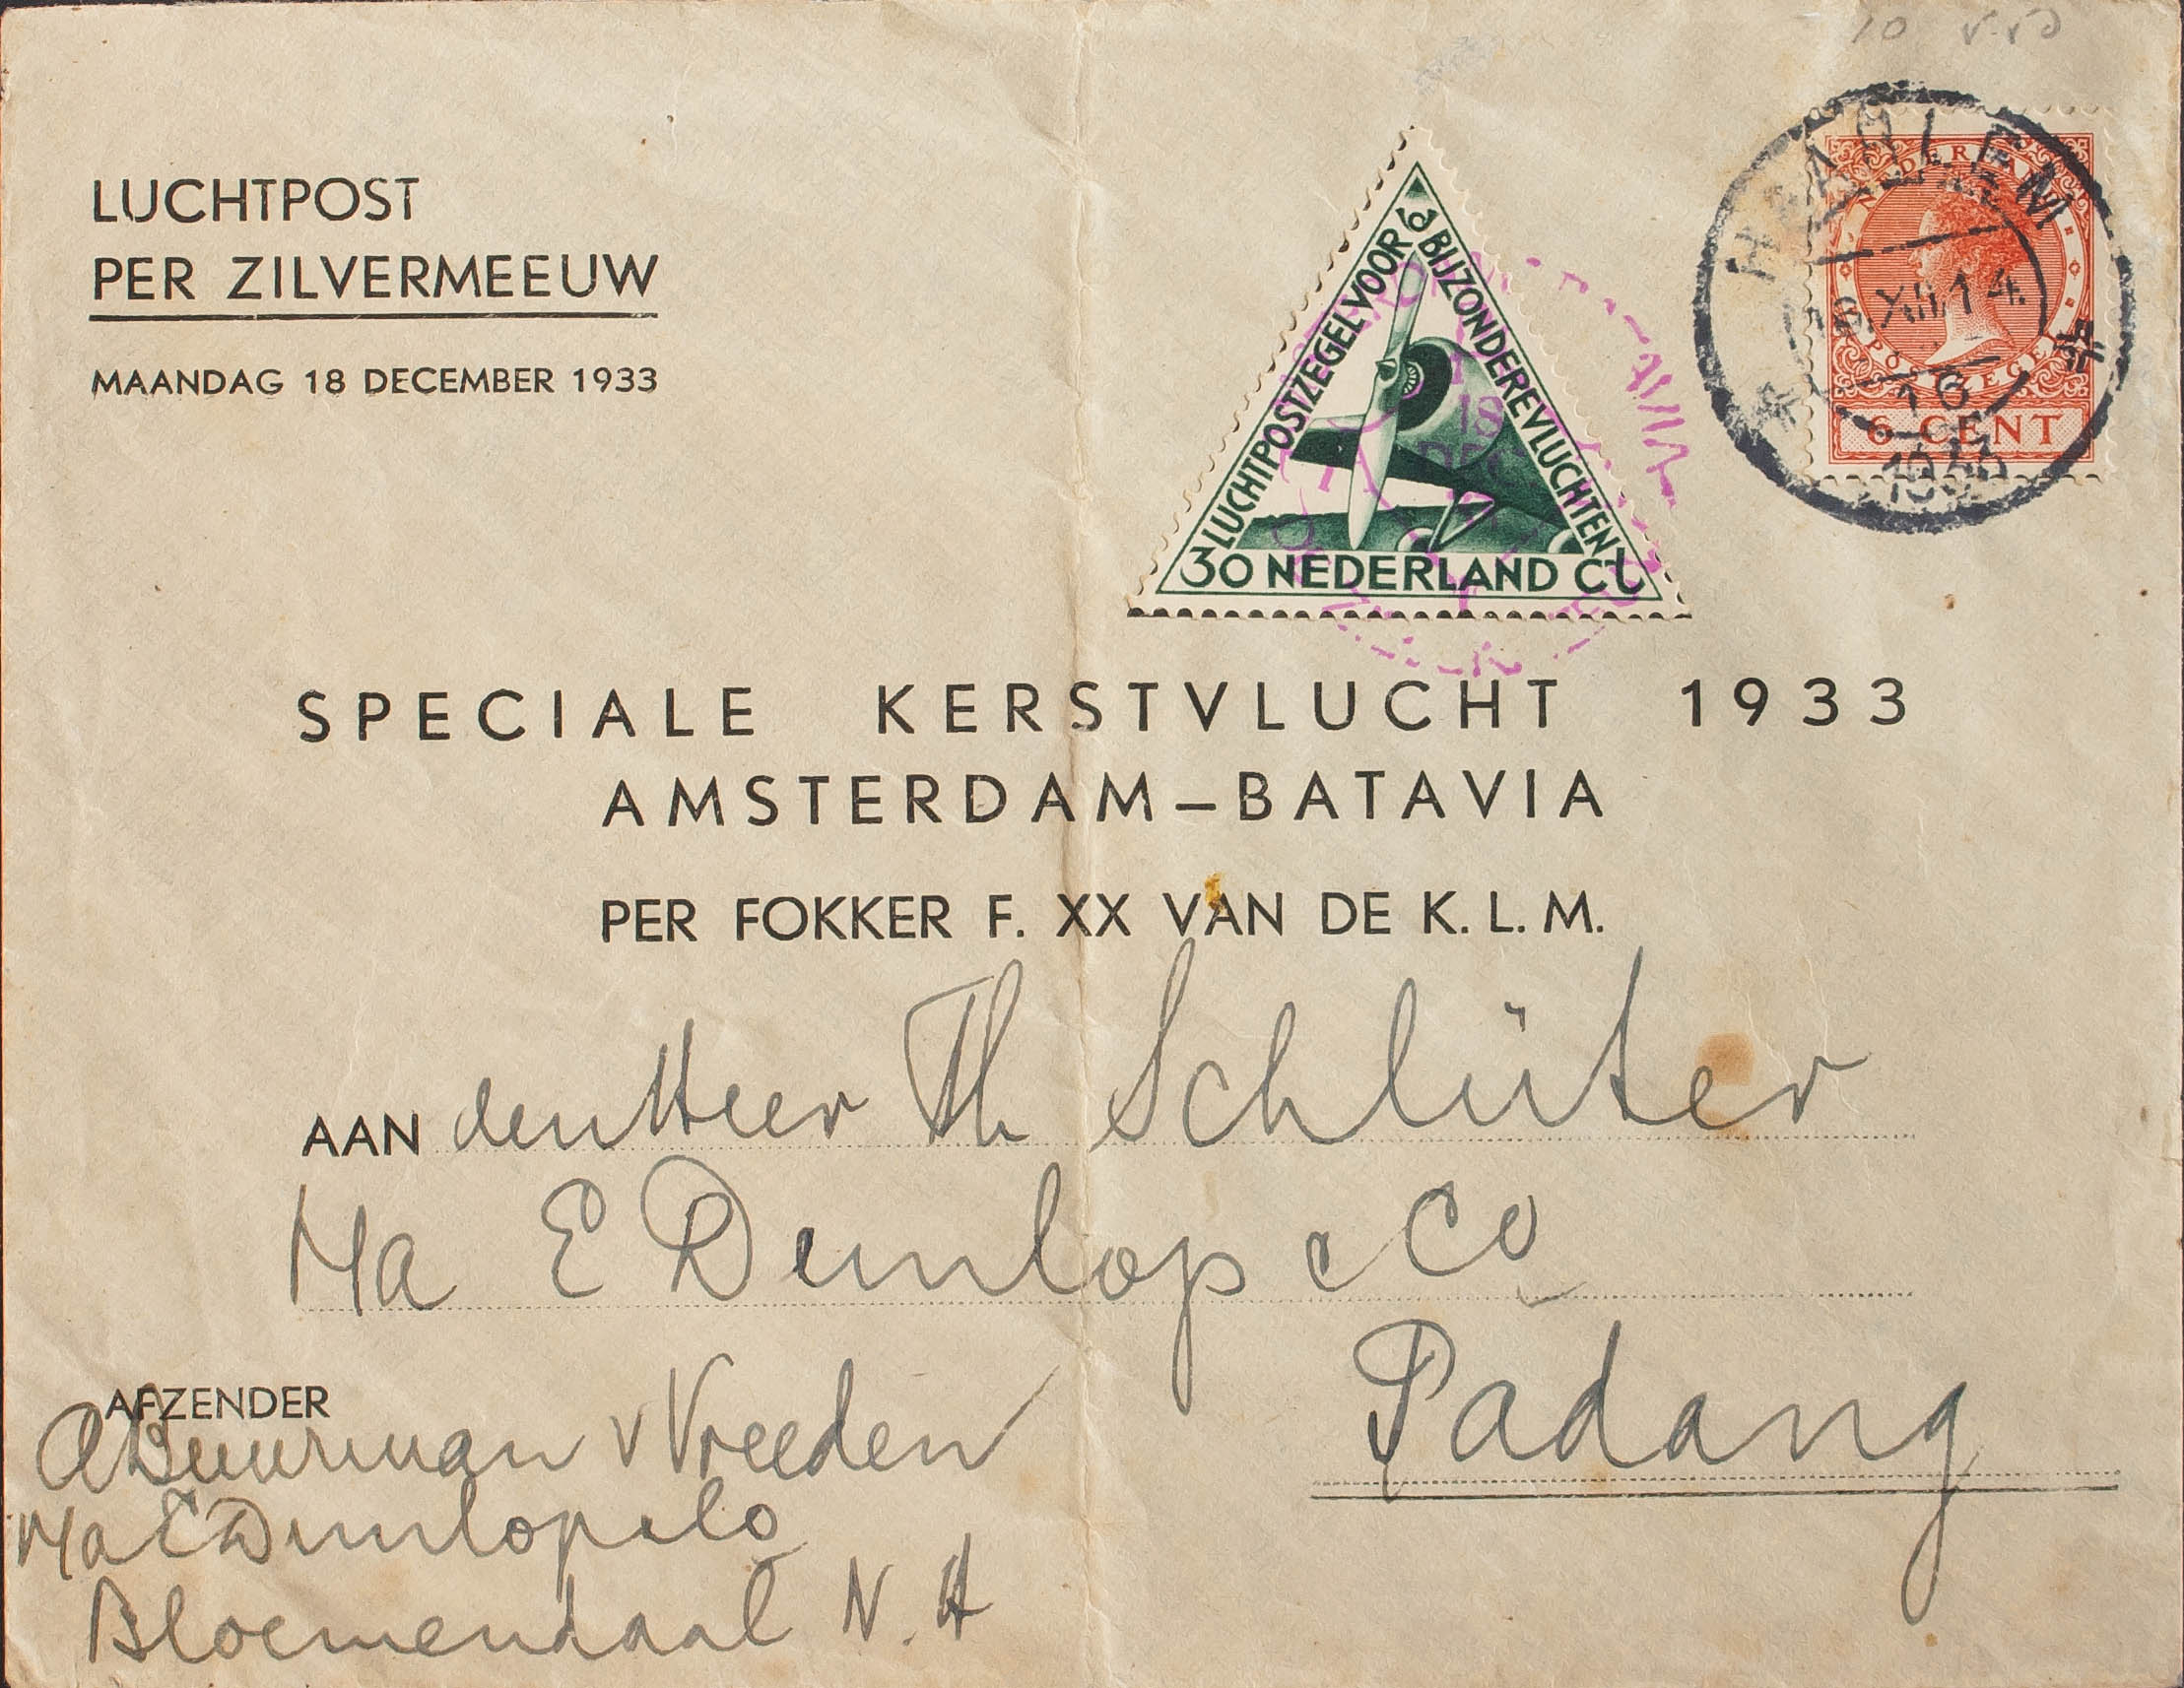 10
LUCHTPOST
PER ZILVERMEEUW
MAANDAG 18 DECEMBER 1933
LUCHTPOSTZEGEL VOOR BIJZONDERE VLUCHTEN
30 NEDERLAND Ct
HAARLEM
XII 14
16
1933
NEDERLAND
POSTZEGEL
6 CENT
18
DEC
SPECIALE KERSTVLUCHT 1933
AMSTERDAM–BATAVIA
PER FOKKER F. XX VAN DE K. L. M.
AAN den Heer Th Schlüter
Ma E Dunlop & Co
Padang
AFZENDER
A Buurman v Vreeden
Ma E Dunlop & Co
Bloemendaal N. H